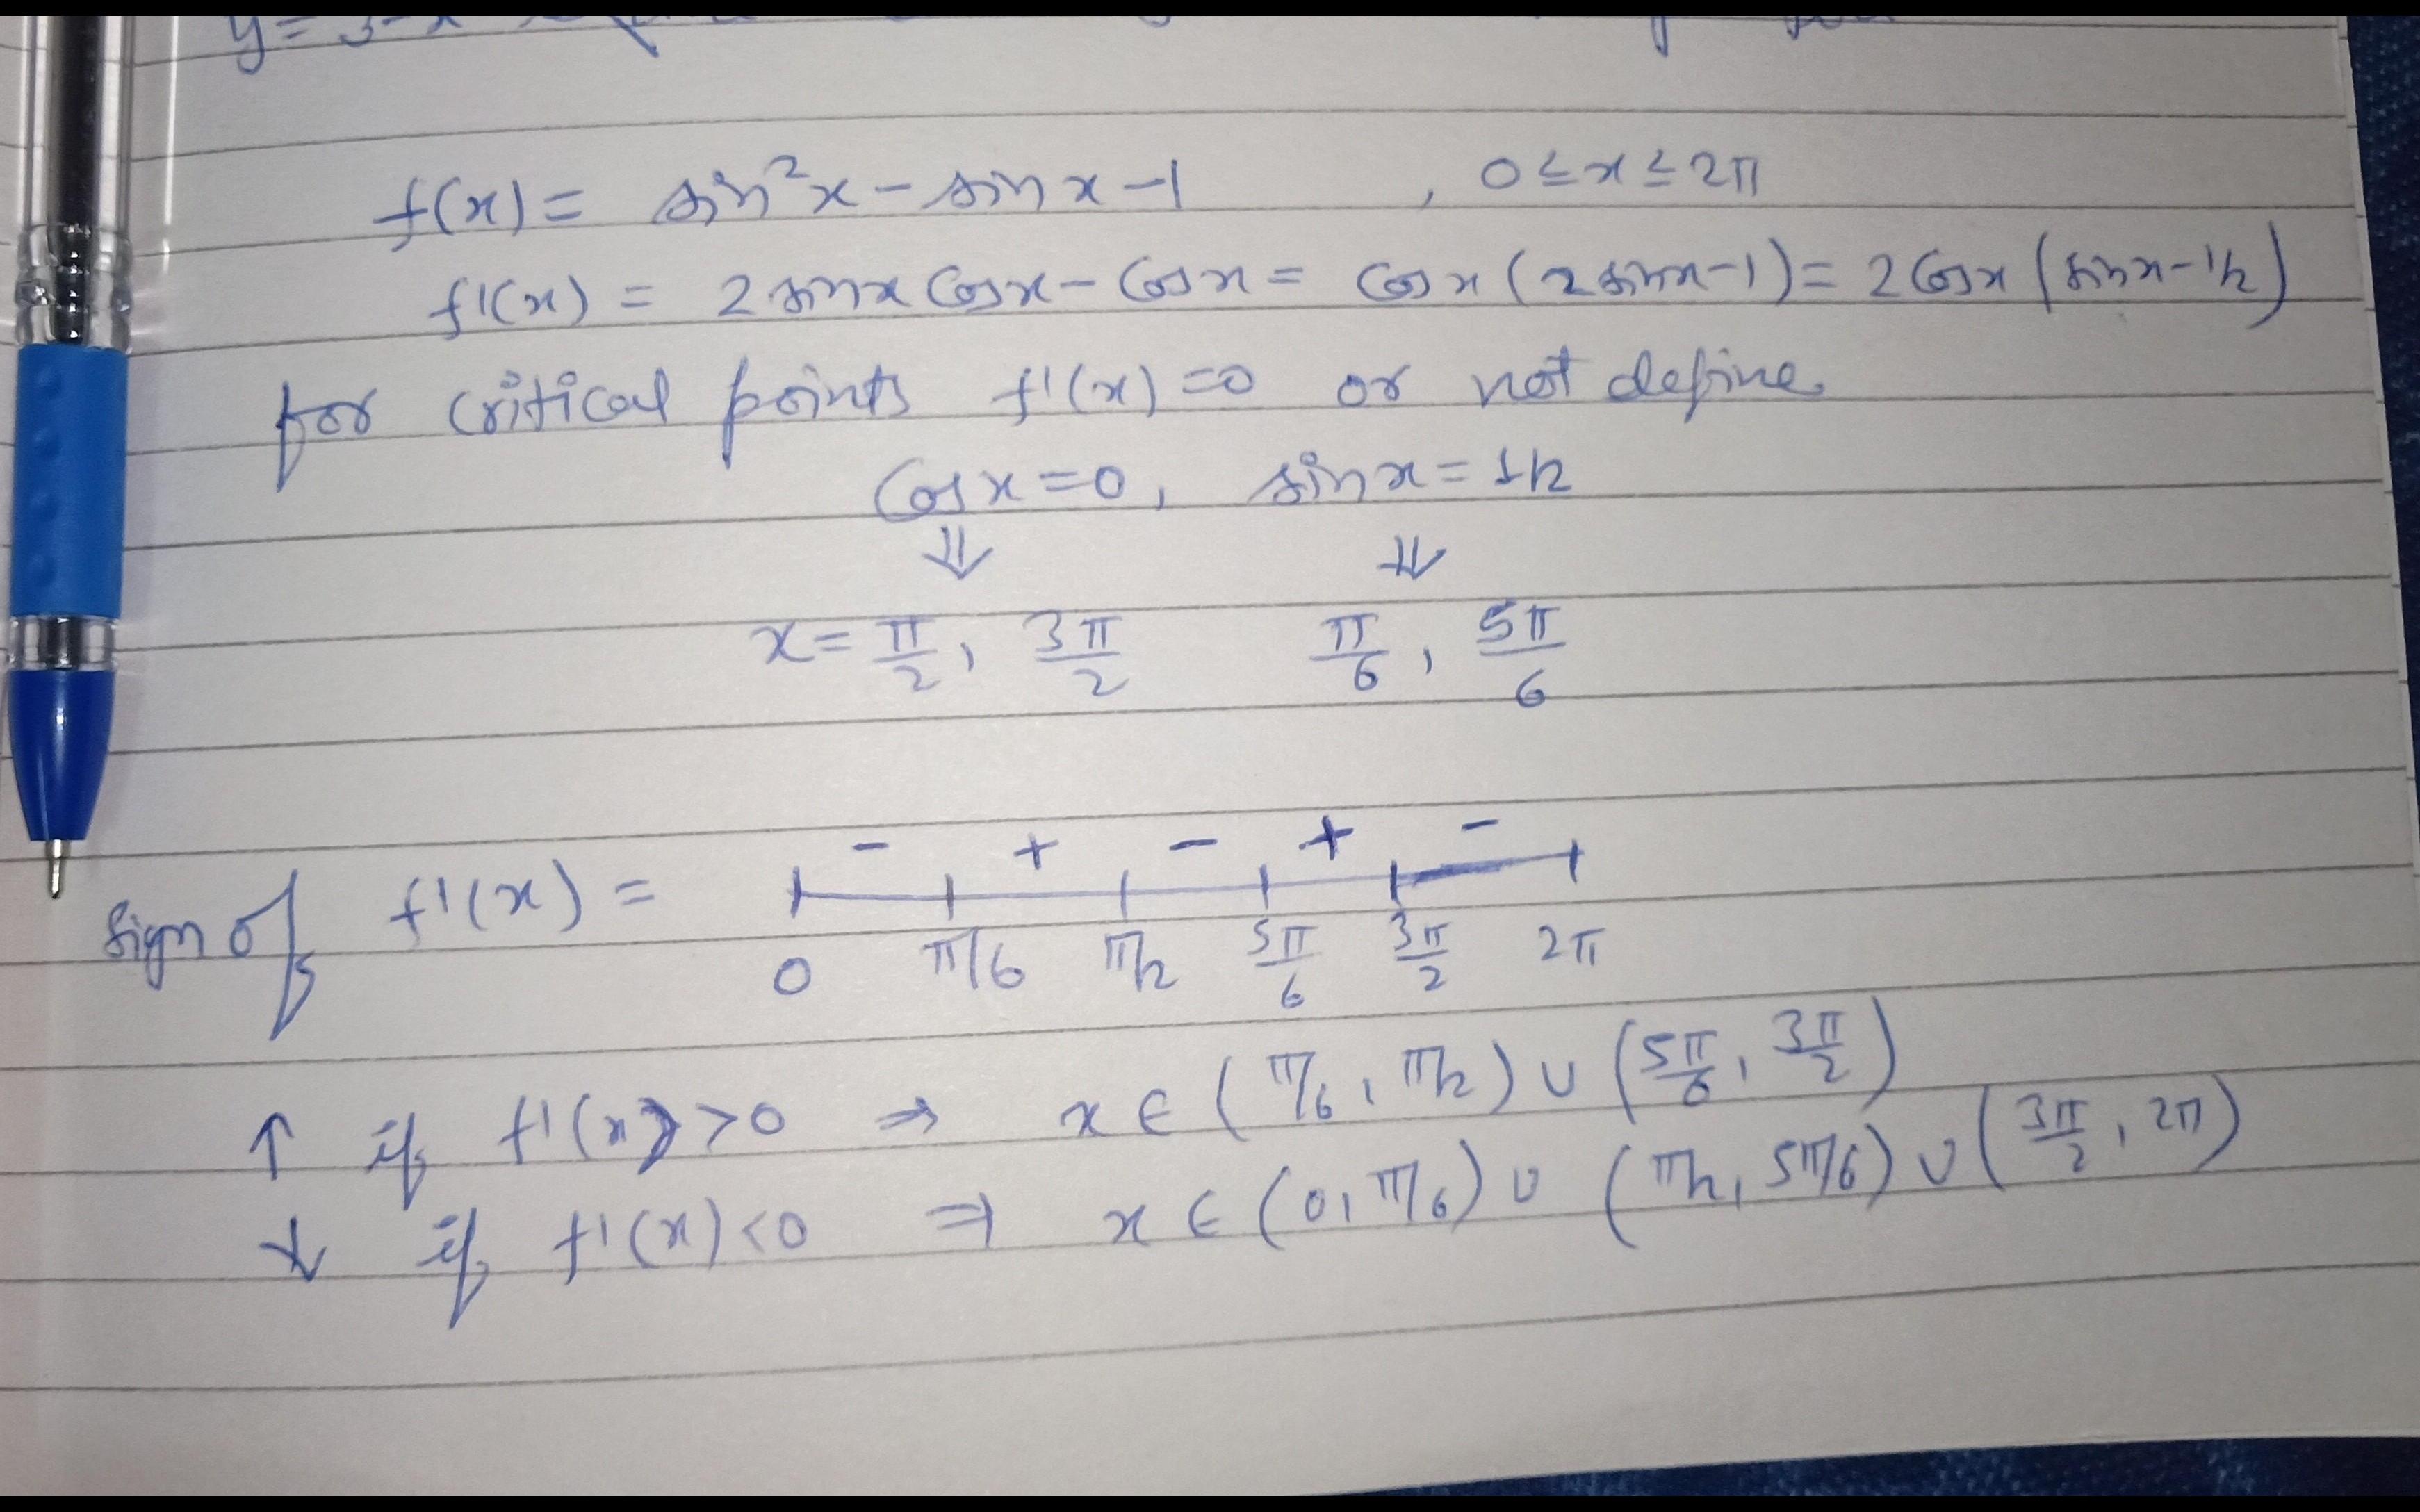 y = 3-x
f(x) = sin²x - sin x - 1 , 0 ≤ x ≤ 2π
f'(x) = 2 sinx Cosx - Cosx = Cosx (2 sinx - 1) = 2 Cosx (sinx - 1/2)
for critical points f'(x) = 0 or not define
Cosx = 0, sinx = 1/2
⇓ ⇓
x = π/2, 3π/2 π/6, 5π/6
- + - + -
Sign of f'(x) =
0 π/6 π/2 5π/6 3π/2 2π
↑ if f'(x) > 0 ⇒ x ∈ (π/6, π/2) ∪ (5π/6, 3π/2)
↓ if f'(x) < 0 ⇒ x ∈ (0, π/6) ∪ (π/2, 5π/6) ∪ (3π/2, 2π)